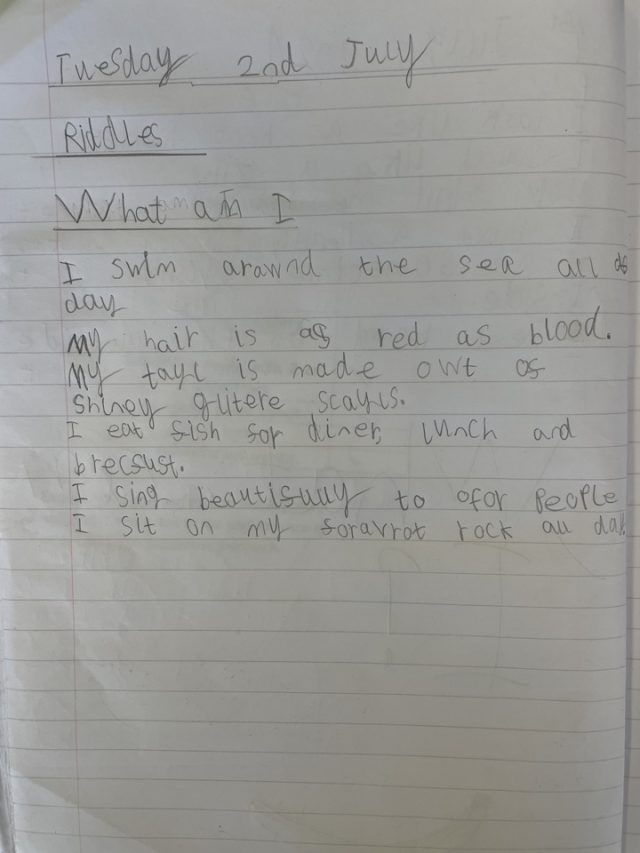 Tuesday 2nd July
Riddles
What am I
I swim arawnd the sea all
day
My hair is as red as blood.
My tayl is made owt of
shiney glitere scayls.
I eat fish for diner, lunch and
brecfust.
I sing beautifully to ofor People
I sit on my foravrot rock all day